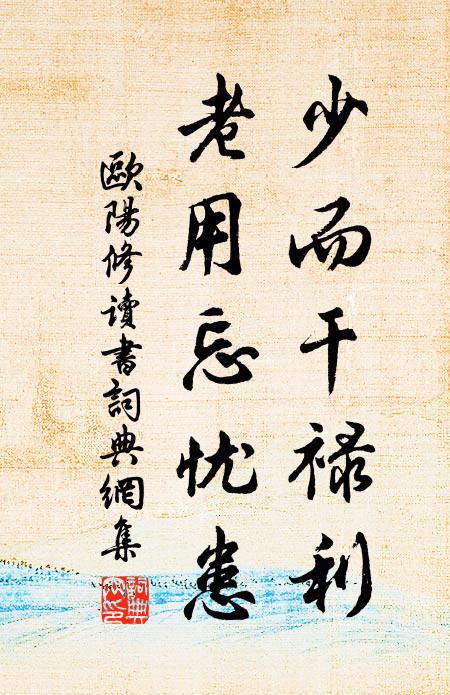 少而干禄利
老用忘忧患
歐陽修讀書詞典網集